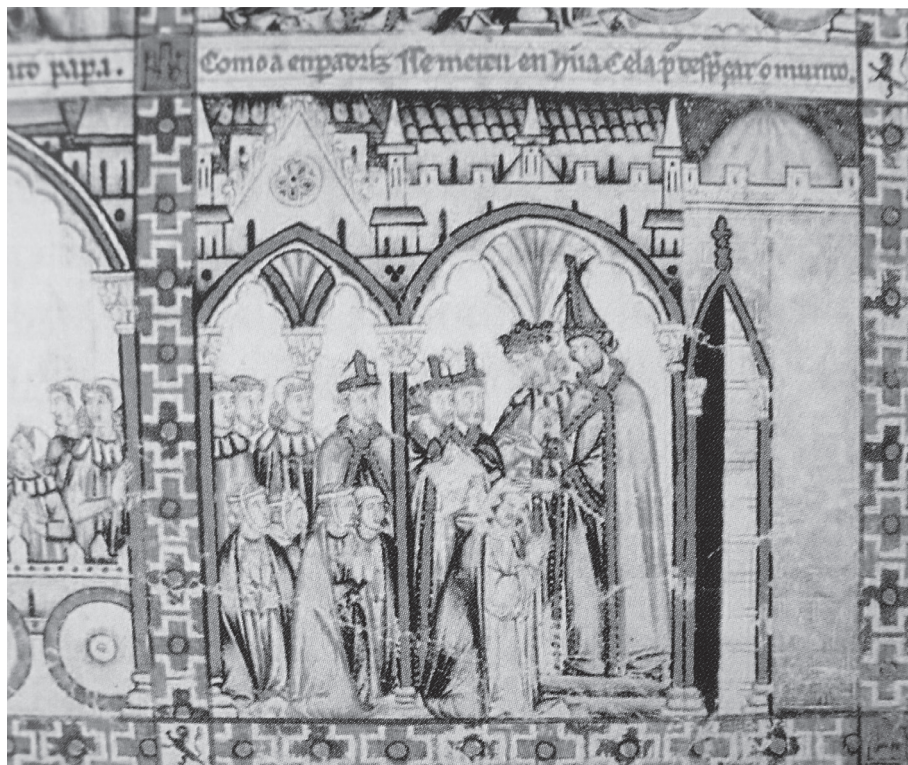 uro papa.
Como a enperariz sse meteu en hũa cela p̃ desp̃çar o munto.